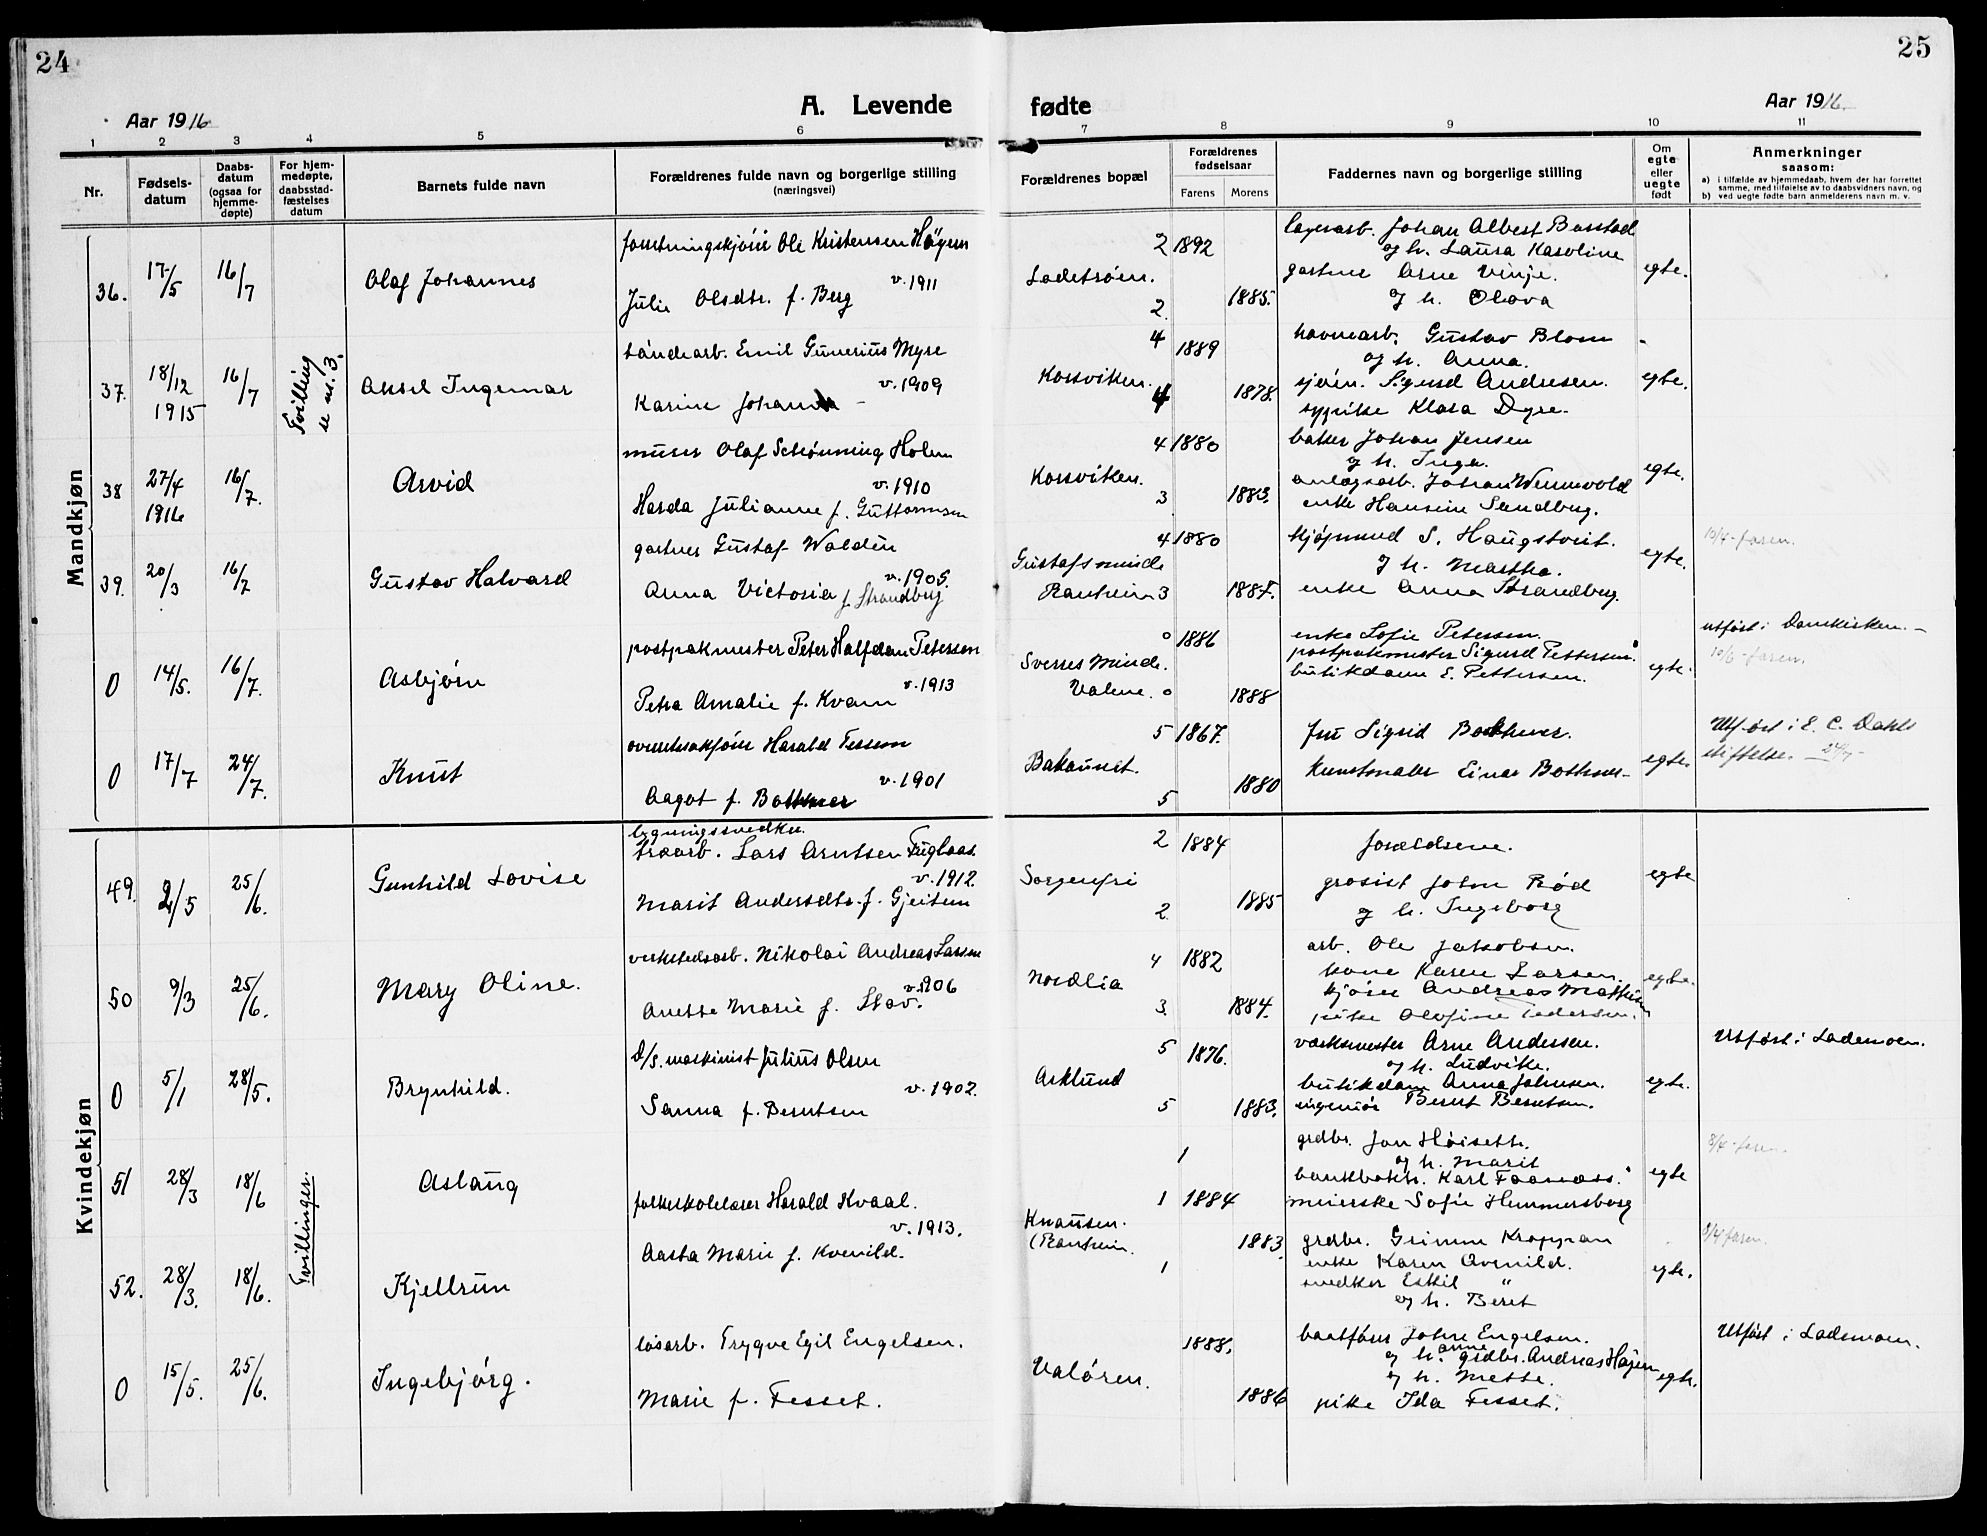 24
25
A. Levende fødte
Aar 1916
Aar 1916
1 2 3 4 5 6 7 8 9 10 11
Nr.
Fødsels-
datum
Daabs-
datum
(ogsaa for
hjemme-
døpte)
For hjem-
medøpte,
daabsstad-
fæstelses
datum
Barnets fulde navn
Forældrenes fulde navn og borgerlige stilling
(næringsvei)
Forældrenes bopæl
Forældrenes
fødselsaar
Farens Morens
Faddernes navn og borgerlige stilling
Om
egte
eller
uegte
født
Anmerkninger
saasom:
a) i tilfælde av hjemmedaab, hvem der har forrettet
samme, med tilføielse av to daabsvidners navn, og
b) ved uegte fødte barn anmelderens navn m. v.
Mandkjøn
36. 17/5 16/7 Olaf Johannes
Ole Kristensen
v. 1911
Julie Olsdtr. f. Berg
Ladetrøen.
2 1892
2 1885.
lagerarb. Johan Albert Busstad
og h. Laura Karoline
gartner Arne Vinje.
og h. Olava
egte.
37. 18/12 1915 16/7
Tvilling
se nr. 3.
Aksel Ingemar
Emil Gunerius Myre
v. 1909
Karine Johanna
Korsviken.
4 1889
4 1878.
havnearb. Gustav Blom
og h. Anna.
sjøm. Sigurd Andresen.
sypike Klara Dyre.
egte.
38 27/4 1916 16/7.
Arvid
murer Olaf Schønning Holm
v. 1910
Harda Julianne f. Guttormsen
Korsviken.
4 1880
3 1883.
baker Johan Jensen
og h. Inga.
anlægsarb. Johan Wennevold
enke Hansine Sandberg.
egte.
39. 20/3 16/7
Gustav Halvard
gartner Gustaf Waldén
v. 1905.
Anna Victoria f. Strandberg
Gustafsminde
Ranheim
4 1880
3 1887.
kjøpmand S. Haugstveit.
og h. Martha.
enke Anna Strandberg.
egte.
10/4-faren.
0 14/5. 16/7.
Asbjørn
postpakmester Peter Halfdan Petersen
v. 1913
Petra Amalie f. Kvam
Sverres Minde.
Valene.
0 1886
0 1888
enke Sofie Petersen.
postpakmester Sigurd Pettersen.
butikdame E. Pettersen.
egte.
utført i Domkirken.
10/6-faren.
0 17/7 24/7.
Knut
Harald Tessem
v. 1901
Aagot f. Bothner
Bakaunet.
5 1867.
5 1880
fru Sigrid Bothner.
Kunstmaler Einar Bothner
egte.
Utført i E. C. Dahls
stiftelse. 24/7
Kvindekjøn
49. 2/5 25/6.
Gunhild Lovise
bygningssnedker
træarb. Lars Arntsen Fuglaas.
v. 1912.
Marit Andersdtr. f. Gjeitem
Sorgenfri
2 1884
2. 1885
forældrene.
grosist John Rød
og h. Ingeborg
egte
50 9/3 25/6.
Mary Oline.
verkstedsarb. Nikolai Andreas Larsen
v. 1906
Anette Marie f. Stav.
Nordlia
4 1882
3. 1884.
arb. Ole Jakobsen.
kone Karen Larsen.
kjører Andreas Mathisen
pike Olofine Pedersen.
egte.
0 5/1 28/5.
Brynhild.
D/S. maskinist Julius Olsen
v. 1902.
Sanna f. Berntsen
Asklund
5 1876.
5 1883.
værksmester Arne Andersen.
og h. Ludvike.
butikdame Anna Johnsen.
ingeniør Bernt Berntsen.
egte.
Utført i Lademoen.
51 28/3 18/6
Tvillinger.
Aslaug
folkeskolelærer Harald Kvaal.
v. 1913.
Aasta Marie f. Kvenild.
Knausen.
(Ranheim.
1
1 1884
1883.
1
grdbr. Jon Høiseth.
og h. Marit
bankbokh. Karl Faanæss.
meierske Sofie Hummersborg
egte
8/4-faren.
52. 28/3. 18/6.
Kjellrun
grdbr. Grimm Kroppan
enke Karen Avenild.
snedker Eskil "
og h. Beret
egte.
8/4 faren.
0 15/5. 25/6.
Ingebjørg.
løsarb. Trygve Egil Engelsen.
Marie f. Fesset.
Valøren.
1888.
1886
baatfører Johs Engelsen.
og h. Anne grdbr. Andreas Hajem
og h. Mette.
pike Ida Fesset.
egte.
Utført i Lademoen.